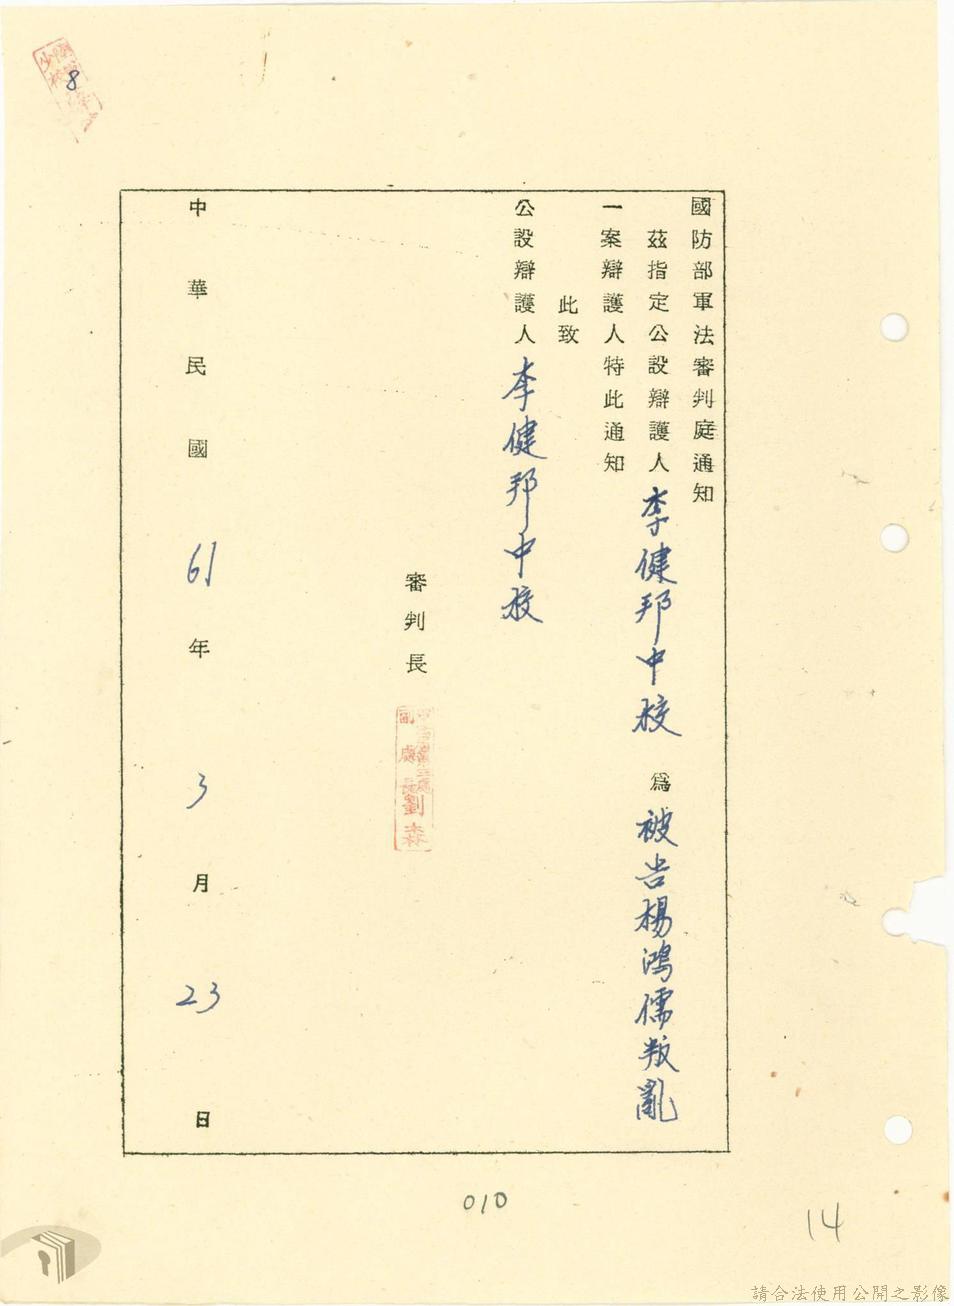 國防部軍法審判庭通知
茲指定公設辯護人李健邦中校 為被告楊鴻儒叛亂
一案辯護人特此通知
此致
公設辯護人李健邦中校
審判長
副處長劉森
中華民國61年3月23日
8
010
14
請合法使用公開之影像